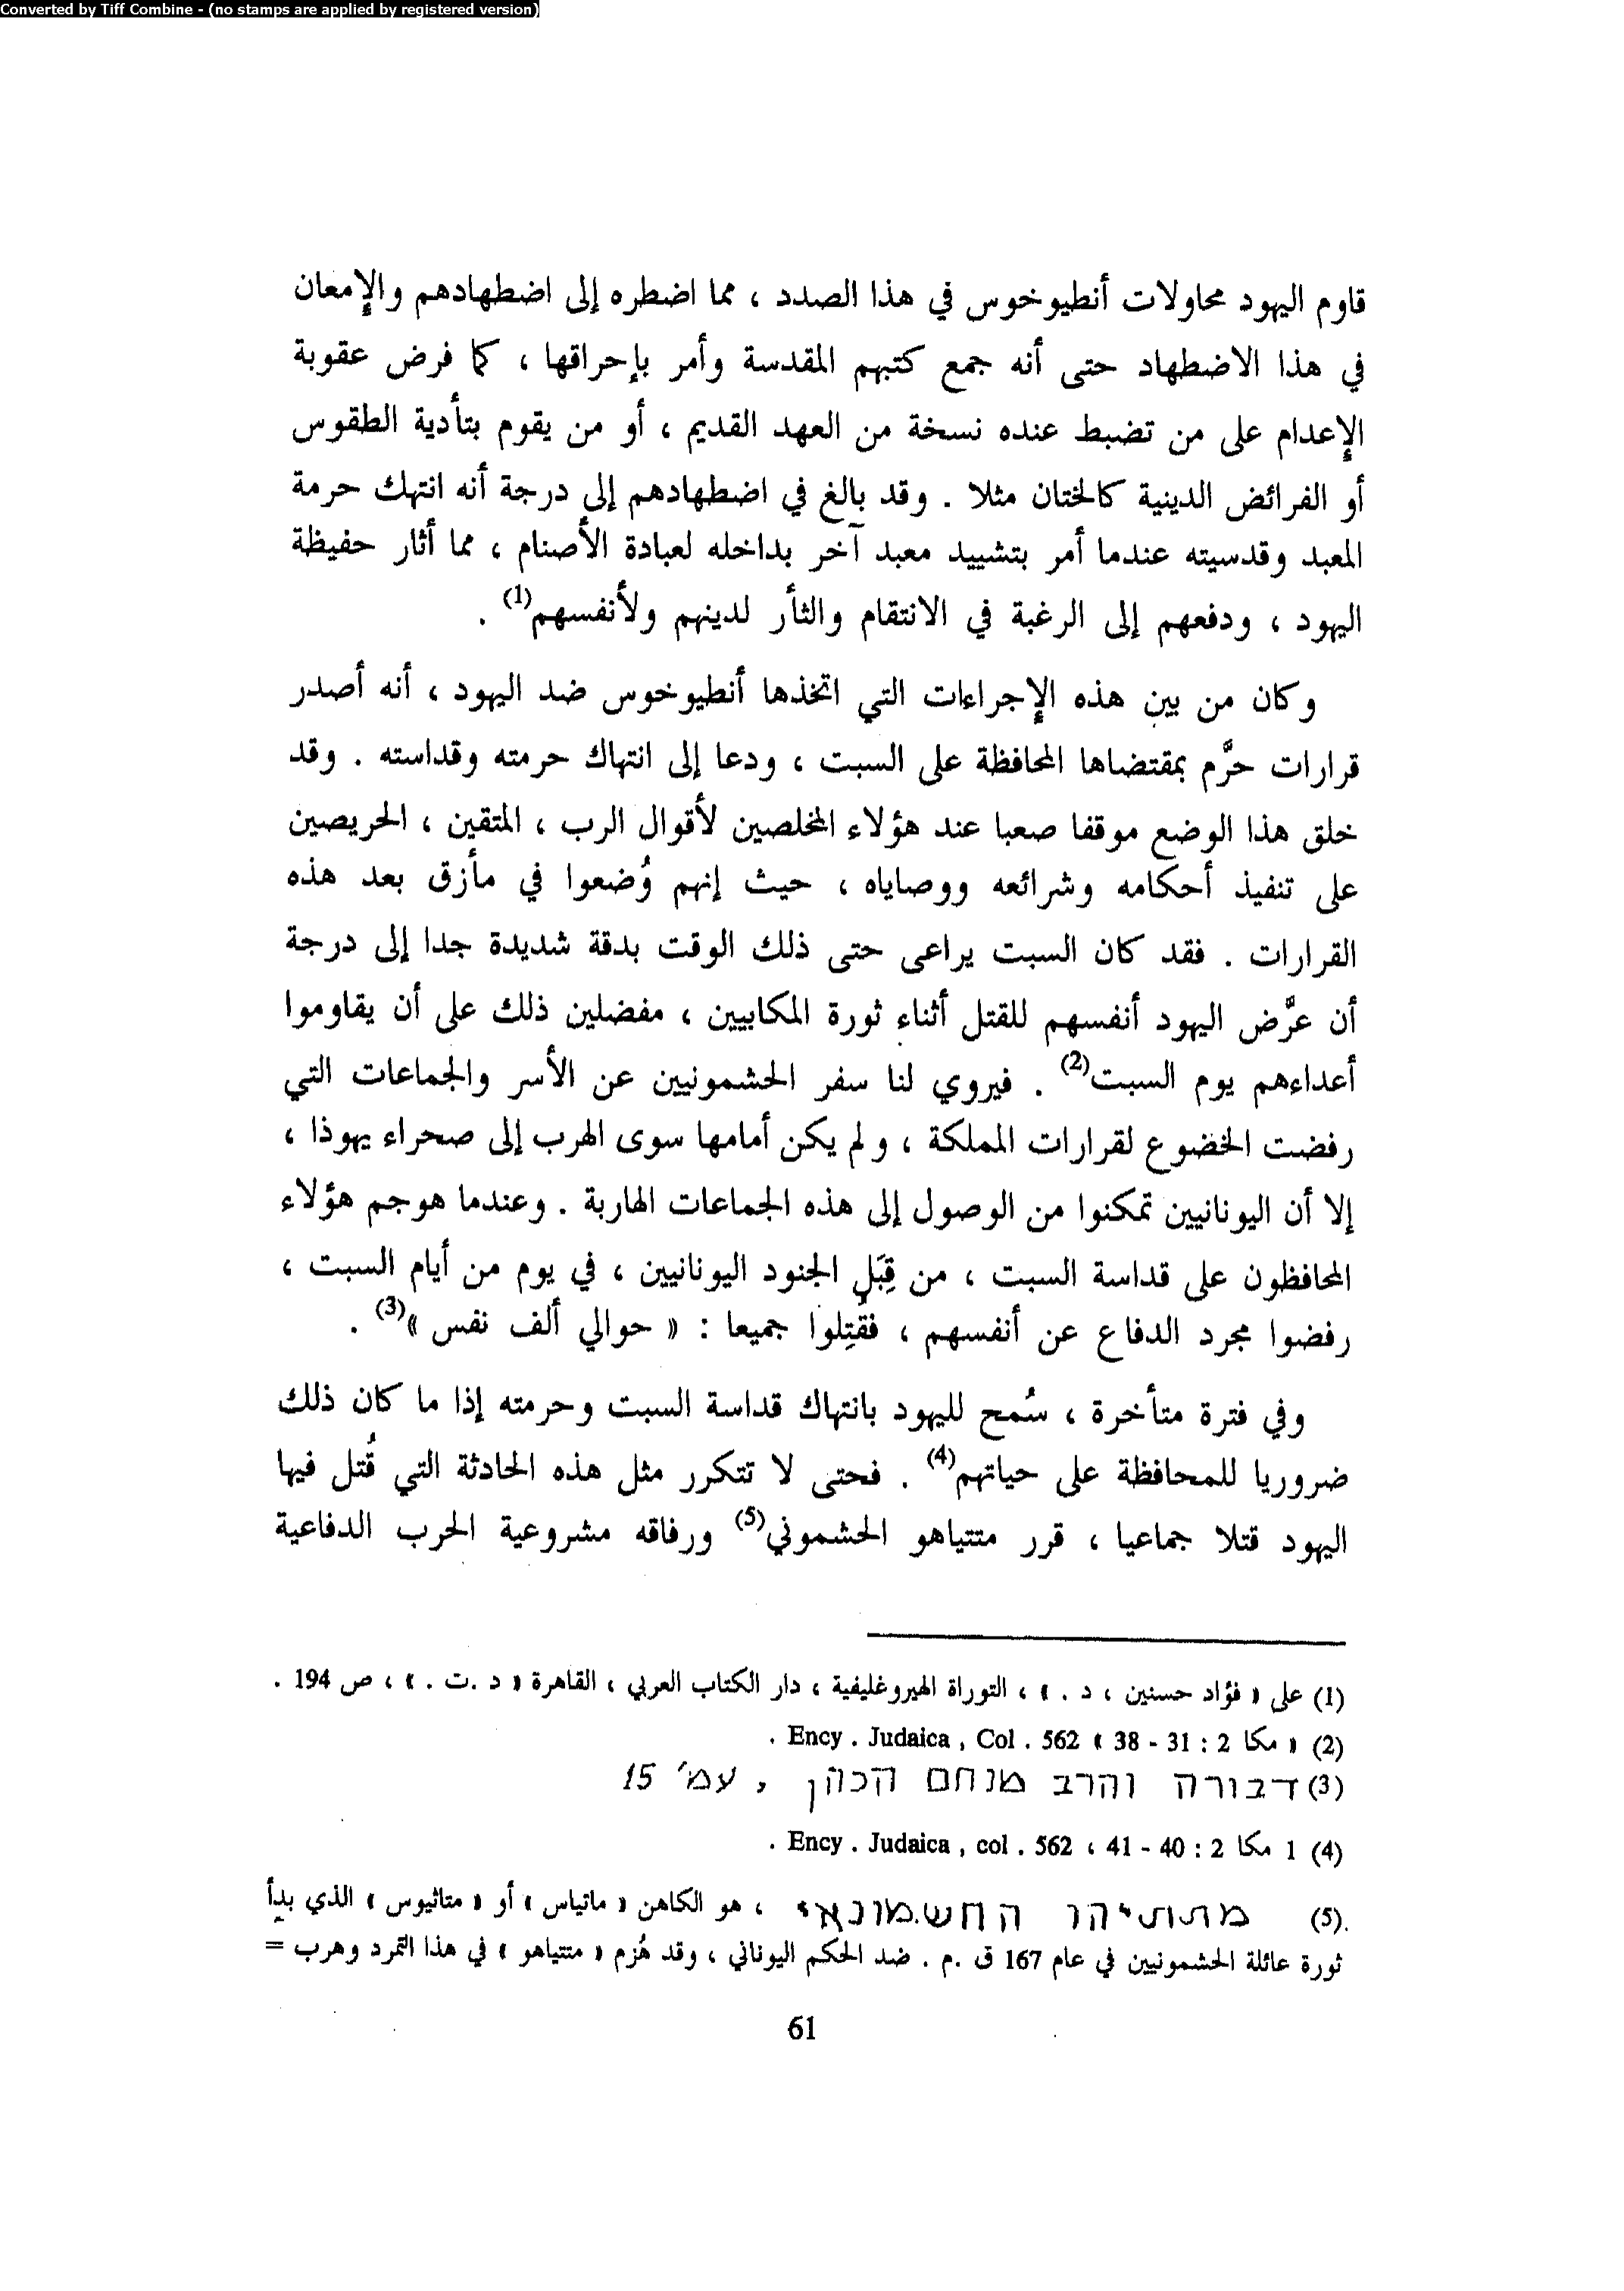 Converted by Tiff Combine - (no stamps are applied by registered version)
قاوم اليهود محاولات أنطيوخوس في هذا الصدد ، مما اضطره إلى اضطهادهم والإمعان
في هذا الاضطهاد حتى أنه جمع كتبهم المقدسة وأمر بإحراقها ، كما فرض عقوبة
الإعدام على من تضبط عنده نسخة من العهد القديم ، أو من يقوم بتأدية الطقوس
أو الفرائض الدينية كالختان مثلا . وقد بالغ في اضطهادهم إلى درجة أنه انتهك حرمة
المعبد وقدسيته عندما أمر بتشييد معبد آخر بداخله لعبادة الأصنام ، مما أثار حفيظة
اليهود ، ودفعهم إلى الرغبة في الانتقام والثأر لدينهم ولأنفسهم(1) .
وكان من بين هذه الإجراءات التي اتخذها أنطيوخوس ضد اليهود ، أنه أصدر
قرارات حرَّم بمقتضاها المحافظة على السبت ، ودعا إلى انتهاك حرمته وقداسته . وقد
خلق هذا الوضع موقفا صعبا عند هؤلاء المخلصين لأقوال الرب ، المتقين ، الحريصين
على تنفيذ أحكامه وشرائعه ووصاياه ، حيث إنهم وُضعوا في مأزق بعد هذه
القرارات . فقد كان السبت يراعى حتى ذلك الوقت بدقة شديدة جدا إلى درجة
أن عرَّض اليهود أنفسهم للقتل أثناء ثورة المكابيين ، مفضلين ذلك على أن يقاوموا
أعداءهم يوم السبت(2) . فيروي لنا سفر الحشمونيين عن الأسر والجماعات التي
رفضت الخضوع لقرارات المملكة ، ولم يكن أمامها سوى الهرب إلى صحراء يهوذا ،
إلا أن اليونانيين تمكنوا من الوصول إلى هذه الجماعات الهاربة . وعندما هوجم هؤلاء
المحافظون على قداسة السبت ، من قِبَلِ الجنود اليونانيين ، في يوم من أيام السبت ،
رفضوا مجرد الدفاع عن أنفسهم ، فقُتِلوا جميعا : « حوالي ألف نفس »(3) .
وفي فترة متأخرة ، سُمح لليهود بانتهاك قداسة السبت وحرمته إذا ما كان ذلك
ضروريا للمحافظة على حياتهم(4) . فحتى لا تتكرر مثل هذه الحادثة التي قُتل فيها
اليهود قتلا جماعيا ، قرر متتياهو الحشموني(5) ورفاقه مشروعية الحرب الدفاعية
(1) على « فؤاد حسنين ، د . » ، التوراة الهيروغليفية ، دار الكتاب العربي ، القاهرة « د .ت . » ، ص 194 .
(2) « مكا 2 : 31 - 38 » Ency . Judaica , Col . 562 .
(3) דבורה והרב מנחם הכהן , עמ' 15
(4) 1 مكا 2 : 40 - 41 ، Ency . Judaica , col . 562 .
(5). מתתיהו החשמונאי ، هو الكاهن « ماتياس » أو « متاثيوس » الذي بدأ
ثورة عائلة الحشمونيين في عام 167 ق .م . ضد الحكم اليوناني ، وقد هُزم « متتياهو » في هذا التمرد وهرب =
61